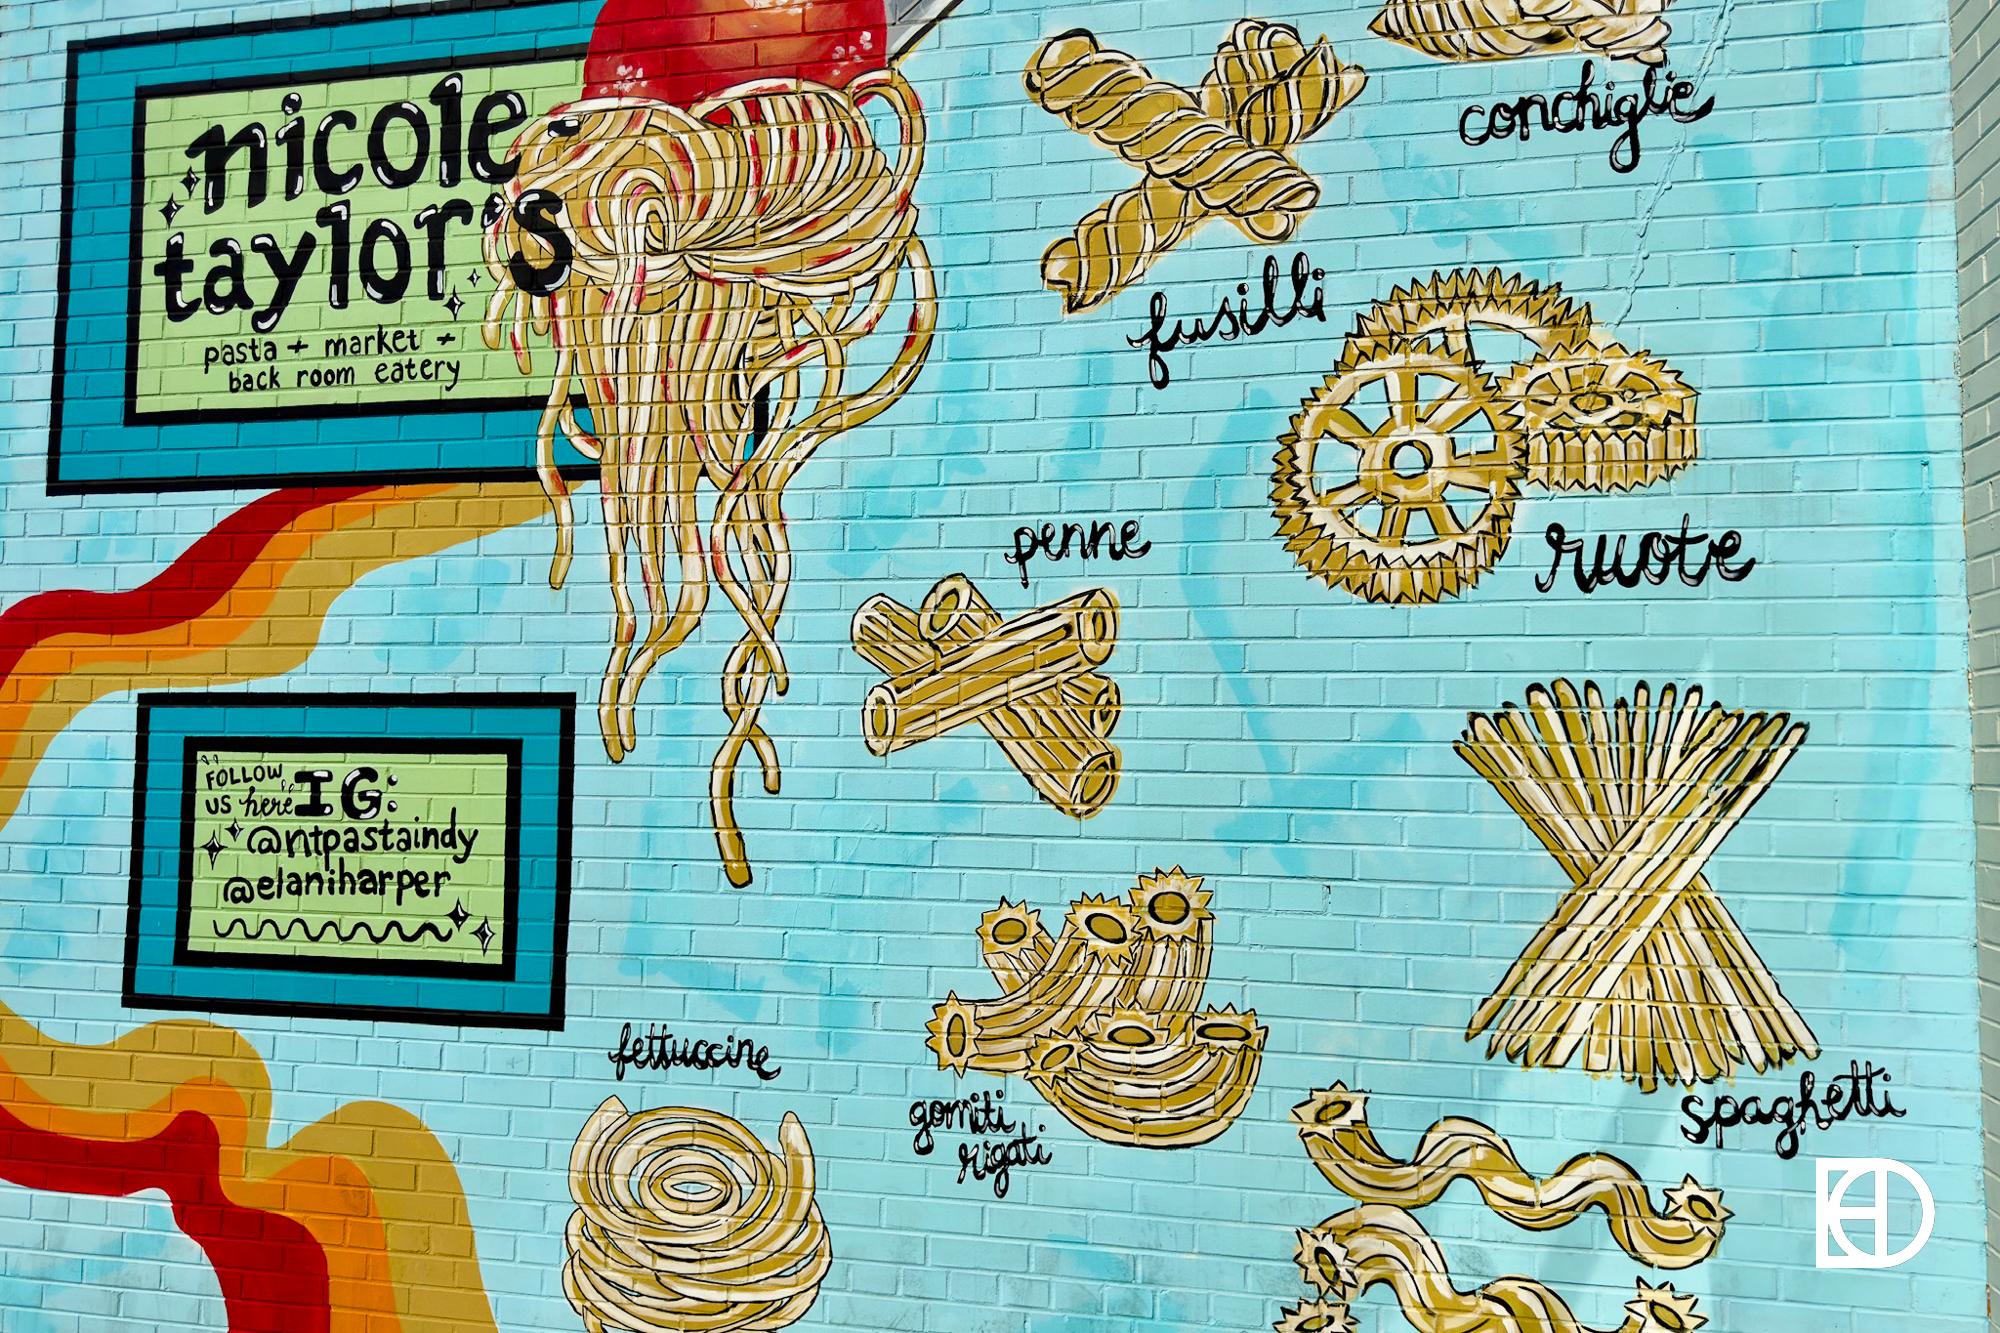 nicole-
taylor's
pasta + market +
back room eatery
conchiglie
fusilli
ruote
penne
FOLLOW
US here IG:
@ntpastaindy
@elaniharper
spaghetti
fettuccine
gomiti
rigati